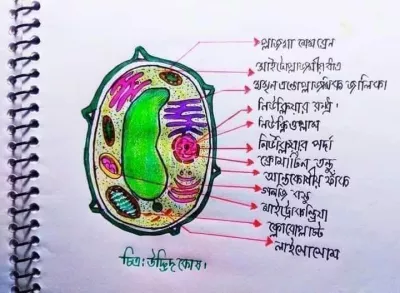 প্লাজমা মেমব্রেন
সাইটোপ্লাজমীয়
মসৃণ এন্ডোপ্লাজমিক জালিকা
নিউক্লিয়ার রন্ধ্র।
নিউক্লিওলাস
নিউক্লিয়ার পর্দা
ক্রোমাটিন তন্তু
আন্তকোষীয় ফাঁক
গলজি বস্তু
মাইটোকন্ড্রিয়া
ক্লোরোপ্লাস্ট
লাইসোসোম
চিত্র: উদ্ভিদ কোষ।